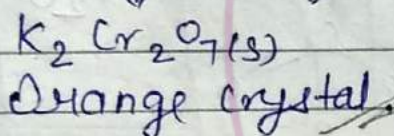 K₂Cr₂O₇(s)
Orange Crystal.